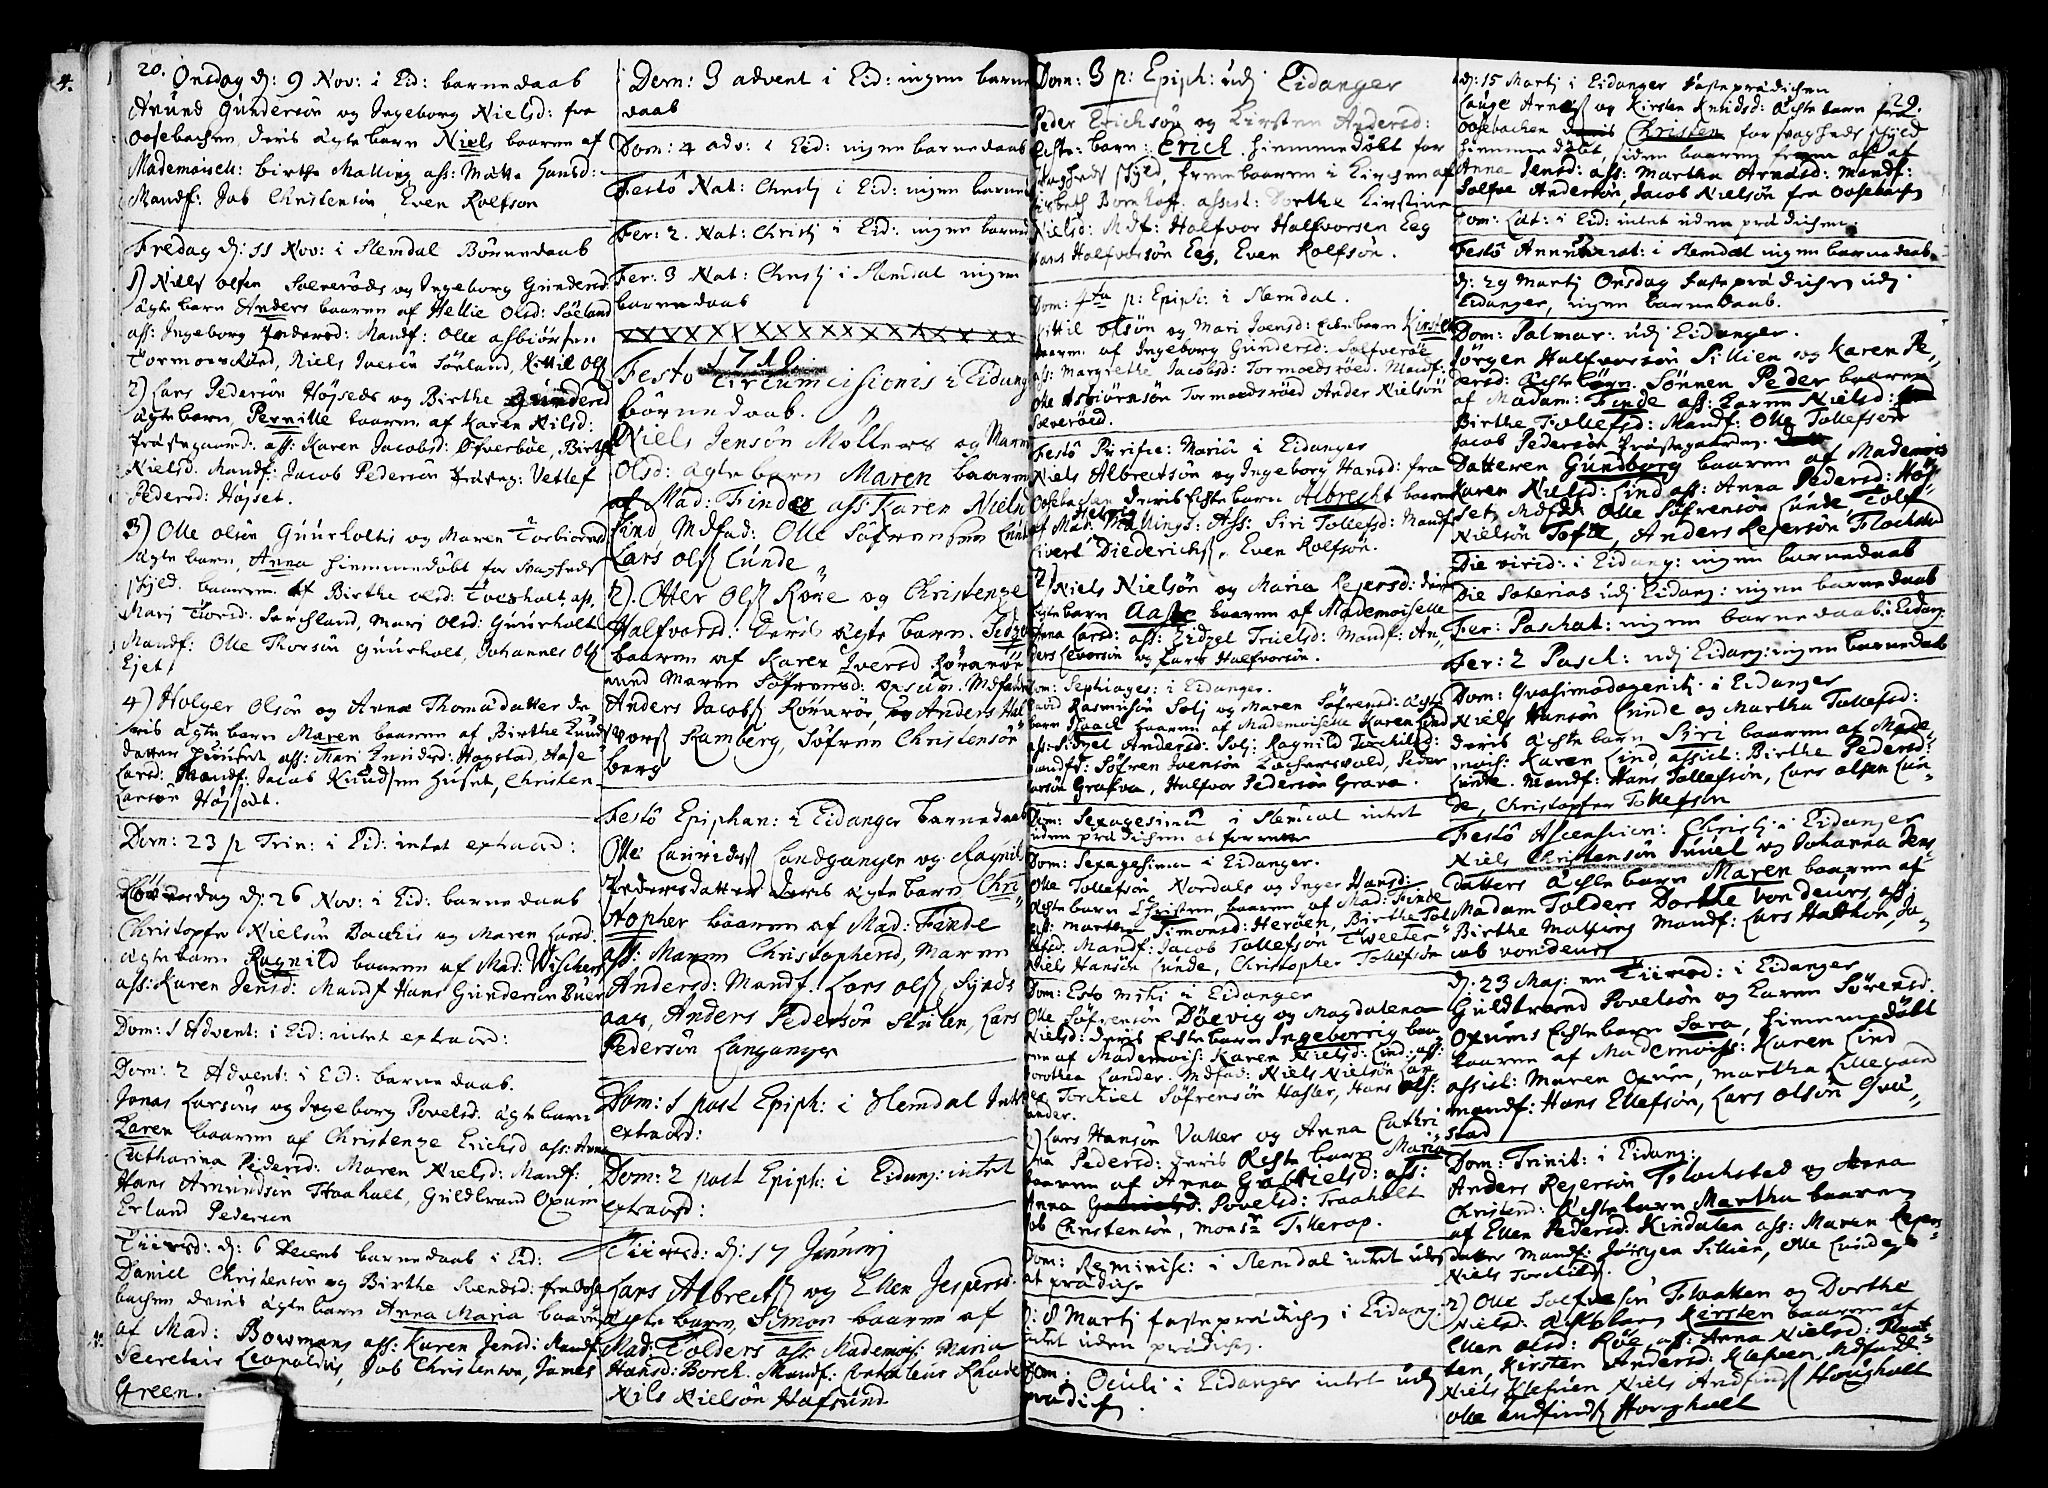 20.
Onsdag d: 9 Nov: i Eid: barnedaab
Amund Gundersøn og Ingeborg Nielsd: fra
Oosebachen, deris ägte barn Niels baaren af
Mademoisell: Birthe Malling ass: Mätte Hansd:
Mandf: Job Christensøn, Even Rolfson
Fredag d: 11 Nov: i Slemdal Børnedaab
1) Niels Olsen Solverøds og Ingeborg Gundersd
ägte barn Anders baaren af Hellie Olsd: Søeland
ass: Ingeborg Andersd: Mandf: Olle Asbiørsen
Tormoesrød, Niels Ivesøn Sørland, Kittil Ols
2) Lars Pedersøn Højseds og Birthe Gundersd
ägte barn Pernille baaren af Karen Nilsd:
Präsegaard. ass: Karen Jacobsd: Øfverbøe, Birthe
Nielsd. Mandf: Jacob Pedersøn Präseg: Vetlef
Pedersd: Højset.
3) Olle Olsøn Guurholtis og Maren Torbiørnsd
ägte barn, Anna hiemmedøbt for svagheds
skyld. baaren af Birthe Olsd: Toesholt, ass,
Mari Tiorsd: Sørchland, Mari Olsd: Guurholt
Mandf: Olle Thorsøn Guurholt, Johannes Ols
Ejet.
4) Holger Olsøn og Anna Thomadatter de
ris ägte barn Maren baaren af Birthe Knud
datter Huuset ass: Mari Hogstad, Aase
Larsd: Mandf: Jacob Knudsen Huset, Christen
Larsøn Højsodt.
Dom: 23 p Trin: i Eid: intet extraord:
Løverdag d: 26 Nov: i Eid: barnedaab
Christopfer Nielsøn Bachis og Maren Larsd.
ägte barn Ragnild baaren af Mad: Wischers
ass: Karen Jensd: Mandf Hans Gundersøn Buer
Dom: 1 Advent: i Eid: intet extraord:
Dom: 2 Advent: i Eid: barnedaab.
Jonas Larsøns og Ingeborg Povelsd: ägte barn
Karen baaren af Christenze Erichsd ass: Anna
Catharina Pedersd: Maren Nielsd: Mandf:
Hans Amundsøn Traaholt, Guldbrand Oxum
Erland Pedersen
Tiirsd: d: 6 Decemb barnedaab i Eid:
Daniel Christensøn og Birthe Svendsd: fra Oose
bachen deris ägte barn Anna Maria baaren
af Mad: Bowmans ass: Karen Jensd: Mandf:
Secretair Leopoldus, Job Christensøn, James
Green.
Dom: 3 advent i Eid: ingen barne
daab
Dom: 4 adv: i Eid: ingen barnedaab
Festo Nat: Christj i Eid: ingen barned
Fer: 2. Nat: Christj i Eid: ingen barned
Fer: 3 Nat: Christj i Slemdal ingen
barnedaab
1719
Festo Circumcisionis i Eidang
børnedaab.
Niels Jensøn Møllers og Maren
Olsd: ägte barn Maren baaren
af Mad: Findes ass: Karen Nielsd
Lind, Mdfad: Olle Söfrensen Lund
Lars Ols Lunde
2). Otter Ols Røre og Christenze
Halfvorsd: deris ägte barn. Sidzel
baaren af Karen Iversd Røraröe
med Maren Söfrensd: Mdfad
Anders Jacobs Rørarøe, Anders Hal
vors Kamberg, Söfren Christensøn
berg
Festo Epiphan: i Eidanger barnedaab
Olle Lauridss Landgangen og Ragnil
Pedersdatter deris ägte barn Chri
stopher baaren af Mad: Finde
ass: Maren Christophersd, Maren
Andersd: Mandf: Lars Ols,
aas, Anders Pedersøn Stulen, Lars
Pedersön Langanger
Dom: 1 post Epiph: i Slemdal Intet
extraord:
Dom: 2 post Epiph: i Eidang: intet
extraord:
Tiirsd: d: 17 Januarj
Lars Albrects og Ellen Jespersd.
ägte barn, Simon baaren af
Mad: Tolders ass: Mademois: Maria
Hansd: Borch. Mandf: Rhode
Nils Nielsön Hafsund
Dom: 3 p: Epiph: udj Eidanger
Peder Erichsøn og Kirsten Andersd:
Echte: barn: Erich. hiemmedøbt for
svagheds skyld, frembaaren i Kirchen af
Lisbeth Bornhoff. assist: Dorthe Kirstine
Nielsd: Mdf: Halfvor Halfvorsen Eeg
Hans Halfvorsön Eeg, Even Rolfsøn.
Dom: 4ta p: Epiph: i Slemdal.
Kittil Olsøn og Mari Ivensd: Echte barn Kirsten
baarn af Ingeborg Gundersd: Solfverøe
ass: Margrethe Jacobsd: Tormoedsröed. Mandf:
Olle Asbiörnsön Tormoedsröed Ander Nielsön
Solverøed.
Festo Purific: Mariä i Eidanger
Niels Albrectsøn og Ingeborg Hansd: fra
Oosebachen deris Echte barn Albrecht baaren
af Mad: Mallings: Ass: Siri Tollefsd: Mandf
Sivert Diederichs, Even Rolfsøn.
2) Niels Nielsøn og Maria Rejersd: deris
Echte barn Aase baaren af Mademoiselle
Anna Larsd: ass: Zidzel Truelsd: Mandf: An-
ders Siversøn og Lars Halfvorsøn.
Dom: Septuages: i Eidanger.
David Rasmusøn Solj og Maren Söfrensd: ächte
barn Isaach baaren af Mademoiselle Karen Lind
ass: Sidzel Andersd: Solj: Ragnild Torchildsd:
Mandfd: Söfren Ivensön Lochersvold, Peder
Larsön Grafva, Halfvor Pedersön Grava.
Dom: Sexagesimä i Slemdal intet
uden prädichen at forrette
Dom: Sexagesima i Eidanger.
Olle Tollefsøn Nordals og Inger Hansd:
Echte barn Christen, baaren af Mad: Finde
ass: Martha Simonsd: Herøen, Birthe Tol
lefsd: Mandf: Jacob Tollefsøn Tweeten
Niels Hansön Lunde, Christopher Tollefsøn
Dom: Esto mihi i Eidanger
Olle Söfrensön Döevig og Magdalena
Nielsd: deris Echte barn Ingeborrig baa
ren af Mademois: Karen Nielsd: Lind: ass:
Dorothea Lunder. Mdfad: Niels Nielsøn Lan
Torchiel Söfrensön Hasler, Hans Ols:
Lunder.
2) Lars Hansøn Valler og Anna Cathri
na Pedersd: deris Echte barn Maria
baaren af Anna Gabrielsd: ass:
Anna Povelsd: Traaholt
Job Christensøn, Monsr Tillerop.
Dom: Reminisc: i Slemdal intet uden
at prädiche
d: 8 Martj fasteprädichen i Eidang:
intet uden prädichen.
Dom: Oculi i Eidanger intet uden
prädichen.
29.
d: 15 Martj i Eidanger fasteprädichen
Lauge Arnes og Kirsten Knudsd: ächte barn fra
Oosebachen Christen for svagheds skyld
hiemmedøbt, siden baaren af
Anna Jensd: ass: Martha Arndsd: Mandf:
Tolfve Andersøn, Jacob Nielsøn fra Oosebachen
Dom: Læt: i Eid: intet uden prädichen.
Festo Annunciat: i Slemdal ingen barnedaab.
d: 29 Martj Onsdag fasteprädichen udj
Eidanger, ingen barnedaab.
Dom: Palmar: udj Eidanger.
Jörgen Halfvorsøn Sillien og Karen Pe-
dersd: ächte børn. Sönnen Peder baaren
af Madam: Finde ass: Karen Nielsd:
Birthe Tollefsd: Mandf: Olle Tollefsøn
Jacob Pedersøn Prästegaarden.
Datteren Gundborg baaren af Mademois
Karen Nielsd: Lind ass: Anna Pedersd: Høj-
set, Mdfad: Olle Söfrensøn Lunde, Tolf
Nielsøn Tofte, Anders Rejersøn Flochstad
Die virid: i Eidang: ingen barnedaab
Die Soterias udj Eidang: ingen barnedaab
Fer: Paschat: ingen barnedaab: i Eidang:
Fer: 2 Pasch: udj Eidang: ingen barnedaab
Dom: Qvasimodogenitj i Eidanger
Niels Hansøn Lunde og Martha Tollefsd:
deris ächte barn Siri baaren af Made-
mois: Karen Lind, assist: Birthe Pedersd:
Lunde. Mandf: Hans Tollefsön, Lars Olsen Lun-
de, Christopher Tollefsøn
Festo Ascension: Christj i Eidanger
Niels Christensøn Juuel og Johanna Jens
datters ächte barn Maren baaren af
Madam Tolders Dorthe Vondeurs, ass:
Birthe Malling Mandf: Lars Hatthon, Ja-
cob vondeurs
d: 23 Maj: en Tiirsd: i Eidanger
Guldbrand Povelsön og Karen Sörensd:
Oxums Echte barn Sara, hiemmedøbt
baaren af Mademois: Karen Lind
assist: Maren Oxum, Martha Lillegaard
Mandf: Hans Ellefsøn, Lars Olsön Qva-
stad
Dom: Trinit: i Eidang:
Anders Rejersøn Flochstad og Anna
Christensd: Ächte barn Martha baaren
af Ellen Pedersd: Kindalen ass: Maren Rejers
datter Mandf: Jörgen Sillien, Olle Lunde
Niels Torchilds.
2) Olle Solfvesøn Floatten og Dorthe
Nielsd: ächte barn Kersten baaren af
Ellen Olsd: Röe, ass: Anna Nielsd: Float
ten, Kirsten Andersd: Klefven, Mdfad:
Niels Klefven Niels Andfinds Houghult
Olle Andfinds Houghult